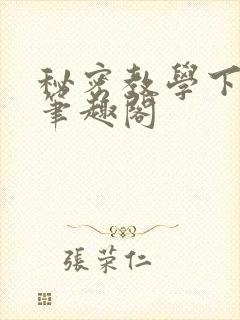 秘密教學下
筆趣閣
張荣仁